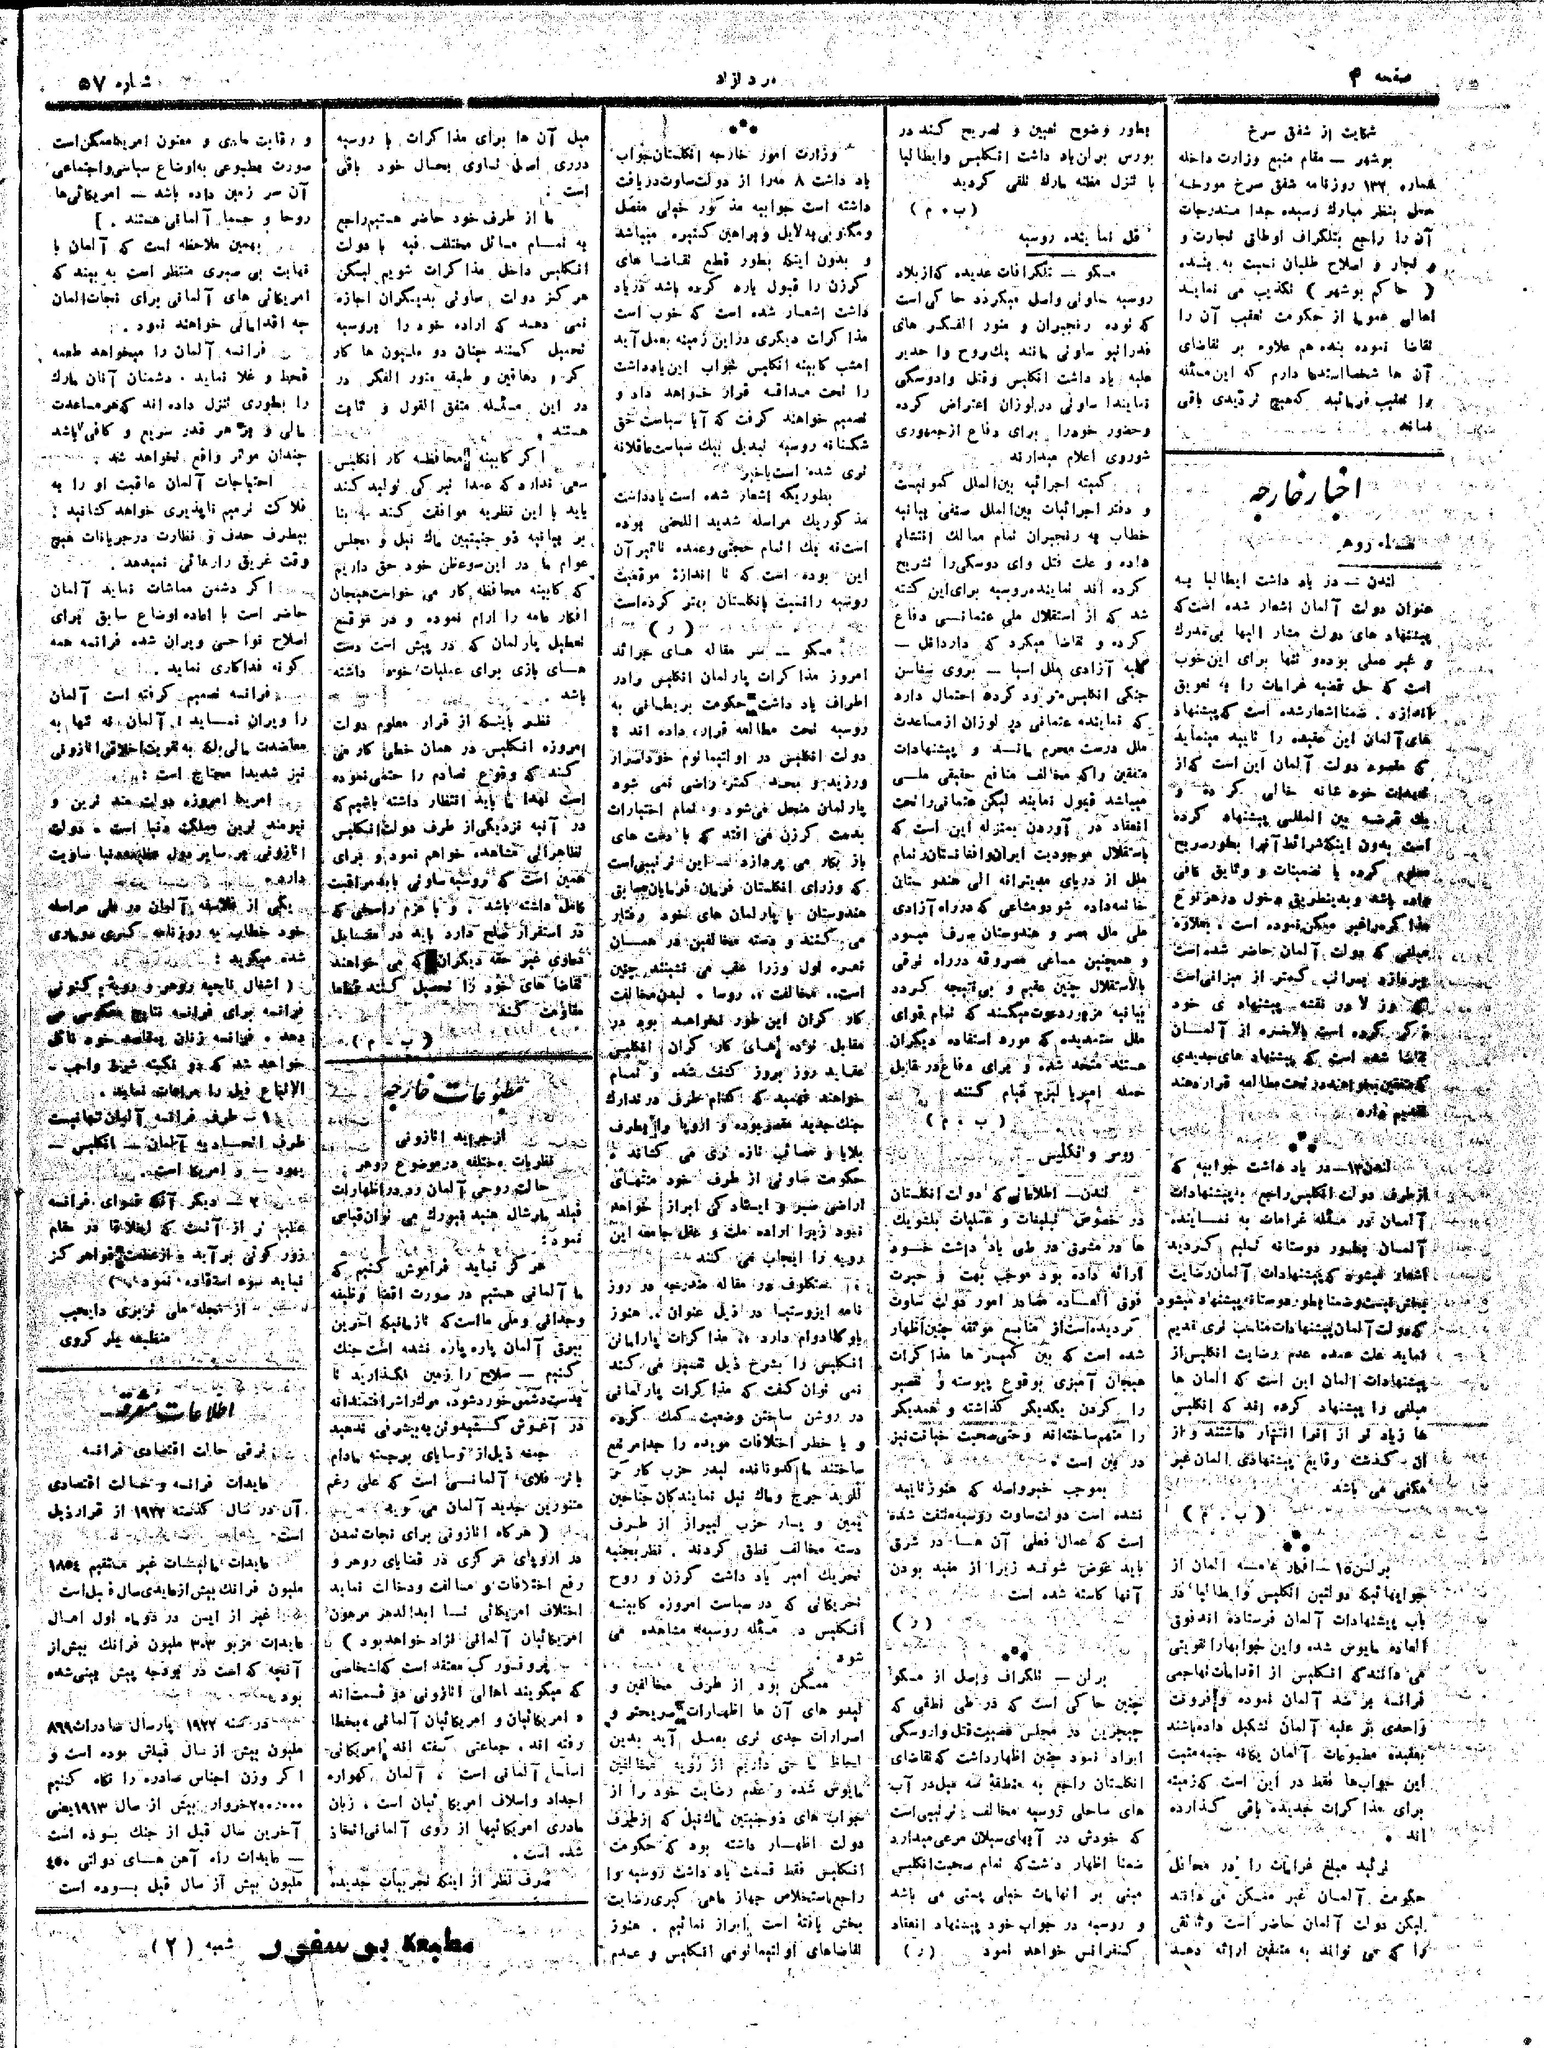 صفحه ۴
مرد آزاد
شماره ۵۷
شکایت از شفق سرخ
بوشهر — مقام منیع وزارت داخله
شماره ۱۳۲ روزنامه شفق سرخ مورخه
حمل بنظر مبارك رسیده جدا مندرجات
آن را راجع بتلگراف اوطانی تجارت و
و تجار و اصلاح طلبان نسبت به بنده
( حاکم بوشهر ) تکذیب می نماید
اهالی عموما از حکومت تعقیب آن را
تقاضا نموده بنده هم علاوه بر تقاضای
آن ها شخصا استدعا دارم که این مسئله
را تعقیب فرمائید که هیچ تردیدی باقی
نماند
اخبار خارجه
مسئله روهر
لندن — در یاد داشت ایطالیا به
عنوان دولت آلمان اشعار شده است که
پیشنهاد های دولت مشار الیها بی مدرك
و غیر عملی بوده و تنها برای این خوب
است که حل قضیه غرامات را به تعویق
اندازد . ضمنا اشعار شده است که پیشنهاد
های آلمان این عقیده را تایید مینماید
که مقصود دولت آلمان این است که از
تعهدات خود شانه خالی کرده و
یك قرضه بین المللی پیشنهاد کرده
است بدون اینکه شرائط آنرا بطور صریح
معلوم کرده یا تضمینات و وثایق کافی
داده باشد و بدینطریق دخول در هر نوع
مذاکره را غیر ممکن نموده است . بعلاوه
مبلغی که دولت آلمان حاضر شده است
بپردازد بمراتب کمتر از میزانی است
که بونار لاو در نقشه پیشنهادی خود
ذکر کرده است بالاخره از آلمان
تقاضا شده است که پیشنهاد های جدیدی
که متفقین بتوانند در تحت مطالعه قرار دهند
تقدیم دارد
لندن ۱۳— در یاد داشت جوابیه که
از طرف دولت انگلیس راجع به پیشنهادات
آلمان در مسئله غرامات به نماینده
آلمان بطور دوستانه تسلیم گردید
اشعار میشود که پیشنهادات آلمان رضایت
بخش نیست و ضمنا بطور دوستانه پیشنهاد میشود
که دولت آلمان پیشنهادات مناسب تری تقدیم
نماید علت عمده عدم رضایت انگلیس از
پیشنهادات المان این است که المان ها
مبلغی را پیشنهاد کرده اند که انگلیس
ها زیاد تر از آنرا انتظار داشتند و از
آن گذشته وثایق پیشنهادی المان غیر
مکفی می باشد
( ب . م )
برلن ۱۵ — افکار عامه المان از
جوابهائیکه دولتین انگلیس و ایطالیا در
باب پیشنهادات آلمان فرستاده اند فوق
العاده مایوس شده و این جوابها را تقویتی
می دانند که انگلیس از اقدامات تهاجمی
فرانسه بر ضد آلمان نموده و اگر وقت
واحدی بر علیه آلمان تشکیل داده باشند
بعقیده مطبوعات آلمان یگانه جنبه مثبت
این جواب‌ها فقط در این است که زمینه
برای مذاکرات جدیده باقی گذارده
اند .
تزئید مبلغ غرامات را در محافل
حکومت آلمان غیر ممکن می دانند
لیکن دولت آلمان حاضر است وثائقی
را که می تواند به متفقین ارائه دهد
بطور وضوح تعیین و تصریح کند در
بورس برلن یاد داشت انگلیس و ایطالیا
با تنزل مظنه مارك تلقی گردید
( ب . م )
قتل نماینده روسیه
مسکو — تلگرافات عدیده که از بلاد
روسیه ساوتی واصل میگردد حاکی است
که توده رنجبران و منور الفکر های
فدراتیو ساوتی مانند یك روح واحد بر
علیه یاد داشت انگلیس و قتل وادوسکی
نماینده ساوتی در لوزان اعتراض کرده
و حضور خود را برای دفاع از جمهوری
شوروی اعلام میدارند
کمیته اجرائیه بین الملل کمونیست
و دفتر اجرائیات بین الملل صنفی بیانیه
خطاب به رنجبران تمام ممالك انتشار
داده و علت قتل وای دوسکی را تشریح
کرده اند نماینده روسیه برای این کشته
شد که از استقلال ملی عثمانی دفاع
کرده و تقاضا میکرد که داردانل —
کلیه آزادی ملل آسیا — بروی سفاین
جنگی انگلیس مسدود گردد احتمال دارد
که نماینده عثمانی در لوزان از مساعدت
ملل درست محرم ماند و پیشنهادات
متفقین را که مخالف منافع حقیقی ملی
میباشد قبول نماید لیکن عثمانی را تحت
انقیاد در آوردن بمنزله این است که
باستقلال موجودیت ایران و افغانستان و تمام
ملل از دریای مدیترانه الی هندوستان
خاتمه داده شود و مشاعی که در راه آزادی
ملی ملل مصر و هندوستان صرف میشود
و همچنین مساعی مصروفه در راه ترقی
بالاستقلال چنین عقیم و بی نتیجه گردد
بیانیه مزبور دعوت میکند که تمام قوای
ملل ستمدیده که مورد استفاده دیگران
هستند متحد شده و برای دفاع در مقابل
حمله امپریالیزم قیام کنند
( ب . م )
روس و انگلیس
لندن — اطلاعاتی که دولت انگلستان
در خصوص تبلیغات و عملیات بلشویك
ها در مشرق در طی یاد داشت خود
ارائه داده بود موجب بهت و حیرت
فوق العاده مصادر امور دولت ساوت
گردیده است از منابع موثقه چنین اظهار
شده است که بین کمیسر ها مذاکرات
هیجان آمیزی بوقوع پیوسته و تقصیر
را گردن یکدیگر گذاشته و همدیگر
را متهم ساخته اند و حتی صحبت خیانت نیز
در بین است .
بموجب خبر واصله که هنوز تایید
نشده است دولت ساوت روسیه ملتفت شده
است که عمال فعلی آن ها در شرق
باید عوض شوند زیرا از مفید بودن
آنها کاسته شده است
( ر )
برلن — تلگراف واصل از مسکو
چنین حاکی است که در طی نطقی که
چیچرین در مجلس مصیبت قتل واروسکی
ایراد نمود چنین اظهار داشت که تقاضای
انگلستان راجع به منطقهٔ سه میل در آب
های ساحلی روسیه مخالف ترتیبی است
که خودش در آبهای سیلان مرعی میدارد
ضمنا اظهار داشت که تمام صحبت انگلیس
مبنی بر اتهامات خیلی پستی می باشد
و روسیه در جواب خود پیشنهاد انعقاد
کنفرانس خواهد نمود ( ر )
وزارت امور خارجه انگلستان جواب
یاد داشت ۸ مه را از دولت ساوت دریافت
داشته است جوابیه مذکور خیلی مفصل
و مکتوبی به دلایل و براهین کثیره میباشد
و بدون اینکه بطور قطع تقاضا های
کرزن را قبول یا رد کرده باشد در یاد
داشت اشعار شده است که خوب است
مذاکرات دیگری در این زمینه بعمل آید
امشب کابینه انگلیس جواب این یادداشت
را تحت مداقه قرار خواهد داد و
تصمیم خواهند گرفت که آیا سیاست حق
شکنانه روسیه تبدیل بیك سیاست عاقلانه
تری شده است یا خیر
بطوریکه اشعار شده است یادداشت
مذکور یك مراسله شدید اللحنی بوده
است نه یك اتمام حجتی و عمده تاثیر آن
این بوده است که تا اندازهٔ موقعیت
روسیه را نسبت بانگلستان بهتر کرده است
( ر )
مسکو — سر مقاله های جرائد
امروز مذاکرات پارلمان انگلیس را در
اطراف یاد داشت حکومت بریطانی به
روسیه تحت مطالعه قرار داده اند :
دولت انگلیس در اولتیماتوم خود اصرار
ورزید و بحد کمتر راضی نمی شود
پارلمان منحل می شود و تمام اختیارات
بدست کرزن می افتد که با دست های
باز بکار می پردازد این ترتیبی است
که وزرای انگلستان فرمان فرمایان سابق
هندوستان با پارلمان های خود رفتار
می کنند و دسته مخالفین در همان
نمره اول وزرا عقب می نشینند چنین
است .. مخالفت .. روسا . لیدن مخالفت
کار گران این طور نخواهند بود در
مقابل توده های کار گران انگلیس
عقاید روز بروز کشف شده و تمام
خواهند فهمید که کدام طرف در تدارك
جنك جدید مقصر بوده و اروپا را بطرف
بلایا و مصائب تازه تری می کشاند .
حکومت ساوتی از طرف خود منتهای
اراضی صبر و ایستادگی ابراز خواهد
نمود زیرا اراده ملت و عقل جامعه این
رویه را ایجاب می کنند
.. متکلوف در مقاله مندرجه در روز
نامه ایزوستیا در ذیل عنوان .. هنوز
بلوکادوام دارد .. مذاکرات پارلمان
انگلیس را بشرح ذیل تفسیر می کند
نمی توان گفت که مذاکرات پارلمانی
در روشن ساختن وضعیت کمك کرده
و یا خطر اختلافات موجوده را جدا مرتفع
ساختند ماکدونالد لیدر حزب کار گر
للوید جرج و ماك نیل نمایندگان جناحین
یمین و یسار حزب لیبرال از طرف
دسته مخالف نطق کردند . نظر بجنبه
تحریك آمیز یاد داشت کرزن و روح
تحریکاتی که در سیاست امروزه کابینه
انگلیس در مسئله روسیه مشاهده می
شود .
ممکن بود از طرف مخالفین و
لیدر های آن ها اظهارات صریحتر و
اصرارات جدی تری بعمل آید بدین
لحاظ ما حق داریم از رویه مخالفین
مایوس شده و عدم رضایت خود را از
جواب های ذوجنبتین ماك نیل که از طرف
دولت اظهار داشته بود که حکومت
انگلیس فقط قسمت یاد داشت روسیه را
راجع باستخلاص جهاز ماهی گیری رضایت
بخش یافته است ابراز نمائیم . هنوز
تقاضاهای اولتیماتومی انگلیس و عدم
میل آن ها برای مذاکرات با روسیه
در روی اصل تساوی بحال خود باقی
است .
ما از طرف خود حاضر هستیم راجع
به تمام مسائل مختلف فیه با دولت
انگلیس داخل مذاکرات شویم لیکن
هرگز دولت ساوتی بدیگران اجازه
نمی دهد که اراده خود را بروسیه
تحمیل کنند میان دو ملیون ها کار
گر و دهاقین و طبقه منور الفکر در
در این مسئله متفق القول و ثابت
هستند .
اگر کابینه محافظه کار انگلیس
سعی ندارد که عمدا تیرگی تولید کند
باید با این نظریه موافقت کند ... بنا
بر بیانیه ذو جنبتین ماك نیل و مجلس
عوام ما در این سوءظن خود حق داریم
که کابینه محافظه کار می خواست هیجان
افکار عامه را آرام نموده و در موقع
تعطیل پارلمان که در پیش است دست
های بازی برای عملیات خود داشته
باشد .
نظر باینکه از قرار معلوم دولت
امروزه انگلیس در همان خطی کار می
کند که وقوع تصادم را حتمی نموده
است لهذا ما باید انتظار داشته باشیم که
در آتیه نزدیکی از طرف دولت انگلیس
تظاهراتی مشاهده خواهیم نمود و برای
همین است که روسیه ساوتی باید مراقبت
کامل داشته باشد . و با عزم راسخی که
در استقرار صلح دارد باید در مقابل
دعاوی غیر حقه دیگران که می خواهند
تقاضا های خود را تحمیل کنند جدا
مقاومت کند
( ب . م )
مطبوعات خارجه
از جراید اتازونی
نظریات مختلفه در موضوع روهر
حالت روحی آلمان را در اظهارات
فیلد مارشال هیندنبورك می توان قیاس
نمود :
هرگز نباید فراموش کنیم که
ما آلمانی هستیم در صورت اقتضا وظیفه
وجدانی و ملی ما است که تا زمانیکه آخرین
بیرق آلمان پاره پاره نشده است جنك
کنیم — سلاح را زمین نگذارید تا
بدست دشمن خورد شود، مرك را شرافتمندانه
در آغوش کشید و تن به بیشرفی ندهید
جمله ذیل از وسایای برجسته مادام
بائر فلای آلمانی است که علی رغم
متنورین جدید آلمان می گوید :
( هر گاه اتازونی برای نجات تمدن
در اروپای مرکزی در قضایای روهر و
رفع اختلافات و مسالمت و دخالت نماید
اختلاف امریکائی تا ابد الدهر مرهون
امریکائیان آلمانی نژاد خواهد بود )
پروفسور کب معتقد است که اشخاصی
که میگویند اهالی اتازونی دو قسمت اند
، امریکائیان و امریکائیان آلمانی ، بخطا
رفته اند . جماعتی گفته اند امریکائی
اساسا آلمانی است ، آلمان گهواره
اجداد و اسلاف امریکائیان است ، زبان
مادری امریکائیها از روی آلمانی اتخاذ
شده است .
صرف نظر از اینکه تجربیات جدیده
و رقابت مادی و معنوی امریکا ممکن است
صورت مطبوعی به اوضاع سیاسی و اجتماعی
آن سر زمین داده باشد — امریکائی‌ها
روحا و جسما آلمانی هستند . ]
بهمین ملاحظه است که آلمان با
نهایت بی صبری منتظر است به بیند که
امریکائی های آلمانی برای نجات المان
چه اقداماتی خواهند نمود .
فرانسه آلمان را میخواهد طعمه
قحط و غلا نماید . دشمنان آنان مارك
را بطوری تنزل داده اند که هر مساعدت
مالی و بهر هر قدر سریع و کافی باشد
چندان موثر واقع نخواهد شد .
احتیاجات آلمان عاقبت او را به
فلاکت ترمیم ناپذیری خواهد کشانید :
بیطرف حذف و نظارت در جریانات هیچ
وقت غریق را رهائی نمیدهد .
اگر دشمن مماشات نماید آلمان
حاضر است با اعاده اوضاع سابق برای
اصلاح نواحی ویران شده فرانسه همه
گونه فداکاری نماید .
فرانسه تصمیم گرفته است آلمان
را ویران نماید ، آلمان نه تنها به
معاضدت مالی بلکه به تقویت اخلاقی اتازونی
نیز شدیدا محتاج است :
امریکا امروزه دولت مند ترین و
نیرومند ترین مملکت دنیا است . دولت
اتازونی بر سایر دول معظمه دنیا مزیت
دارد .
یکی از فلاسفه آلمان در طی مراسله
خود خطاب به روزنامه کبری موبادی
شده میگوید :
( اشغال ناحیه روهر و رویه کنونی
فرانسه برای فرانسه نتایج معکوسی می
دهد . فرانسه زمان بمقاصد خود نائل
خواهد شد که دو نکته شرط واجب
الاتباع ذیل را مراعات نماید .
۱ — طرف فرانسه آلمان تنها نیست
طرف اتحادیه آلمان — انگلیس —
یهود — و امریکا است .
۲ — دیگر آنکه قوای فرانسه
علیل تر از آنست که اتفاقا در مقام
زور گوئی برآید . از ... خواهر گز
نباید سوء استفاده نمود . )
از مجله ملی تبریزی دایجیب
منطبعه نیو کروی
اطلاعات متفرقه
ترقی حالت اقتصادی فرانسه
عایدات فرانسه و حالت اقتصادی
آن در سال گذشته ۱۹۲۲ از قرار ذیل
است :
عایدات مالیات غیر مستقیم ۱۸۵٤
ملیون فرانك بیش از عایدی سال قبل است
غیر از این در دو ماه اول امسال
عایدات مزبور ۳۰۳ ملیون فرانك بیش از
آنچه که است در بودجه پیش بینی شده
بود
در سنه ۱۹۲۲ پارسال صادرات ۸۹۹
ملیون بیش از سال قبلش بوده است و
اگر وزن اجناس صادره را نگاه کنیم
۲۰۰،۰۰۰ خروار بیش از سال ۱۹۱۳ یعنی
آخرین سال قبل از جنك بوده است
— عایدات راه آهن های دولتی ٤۵۰
ملیون بیش از سال قبل بوده است
مطبعه بوسفور شعبه ( ۲ )